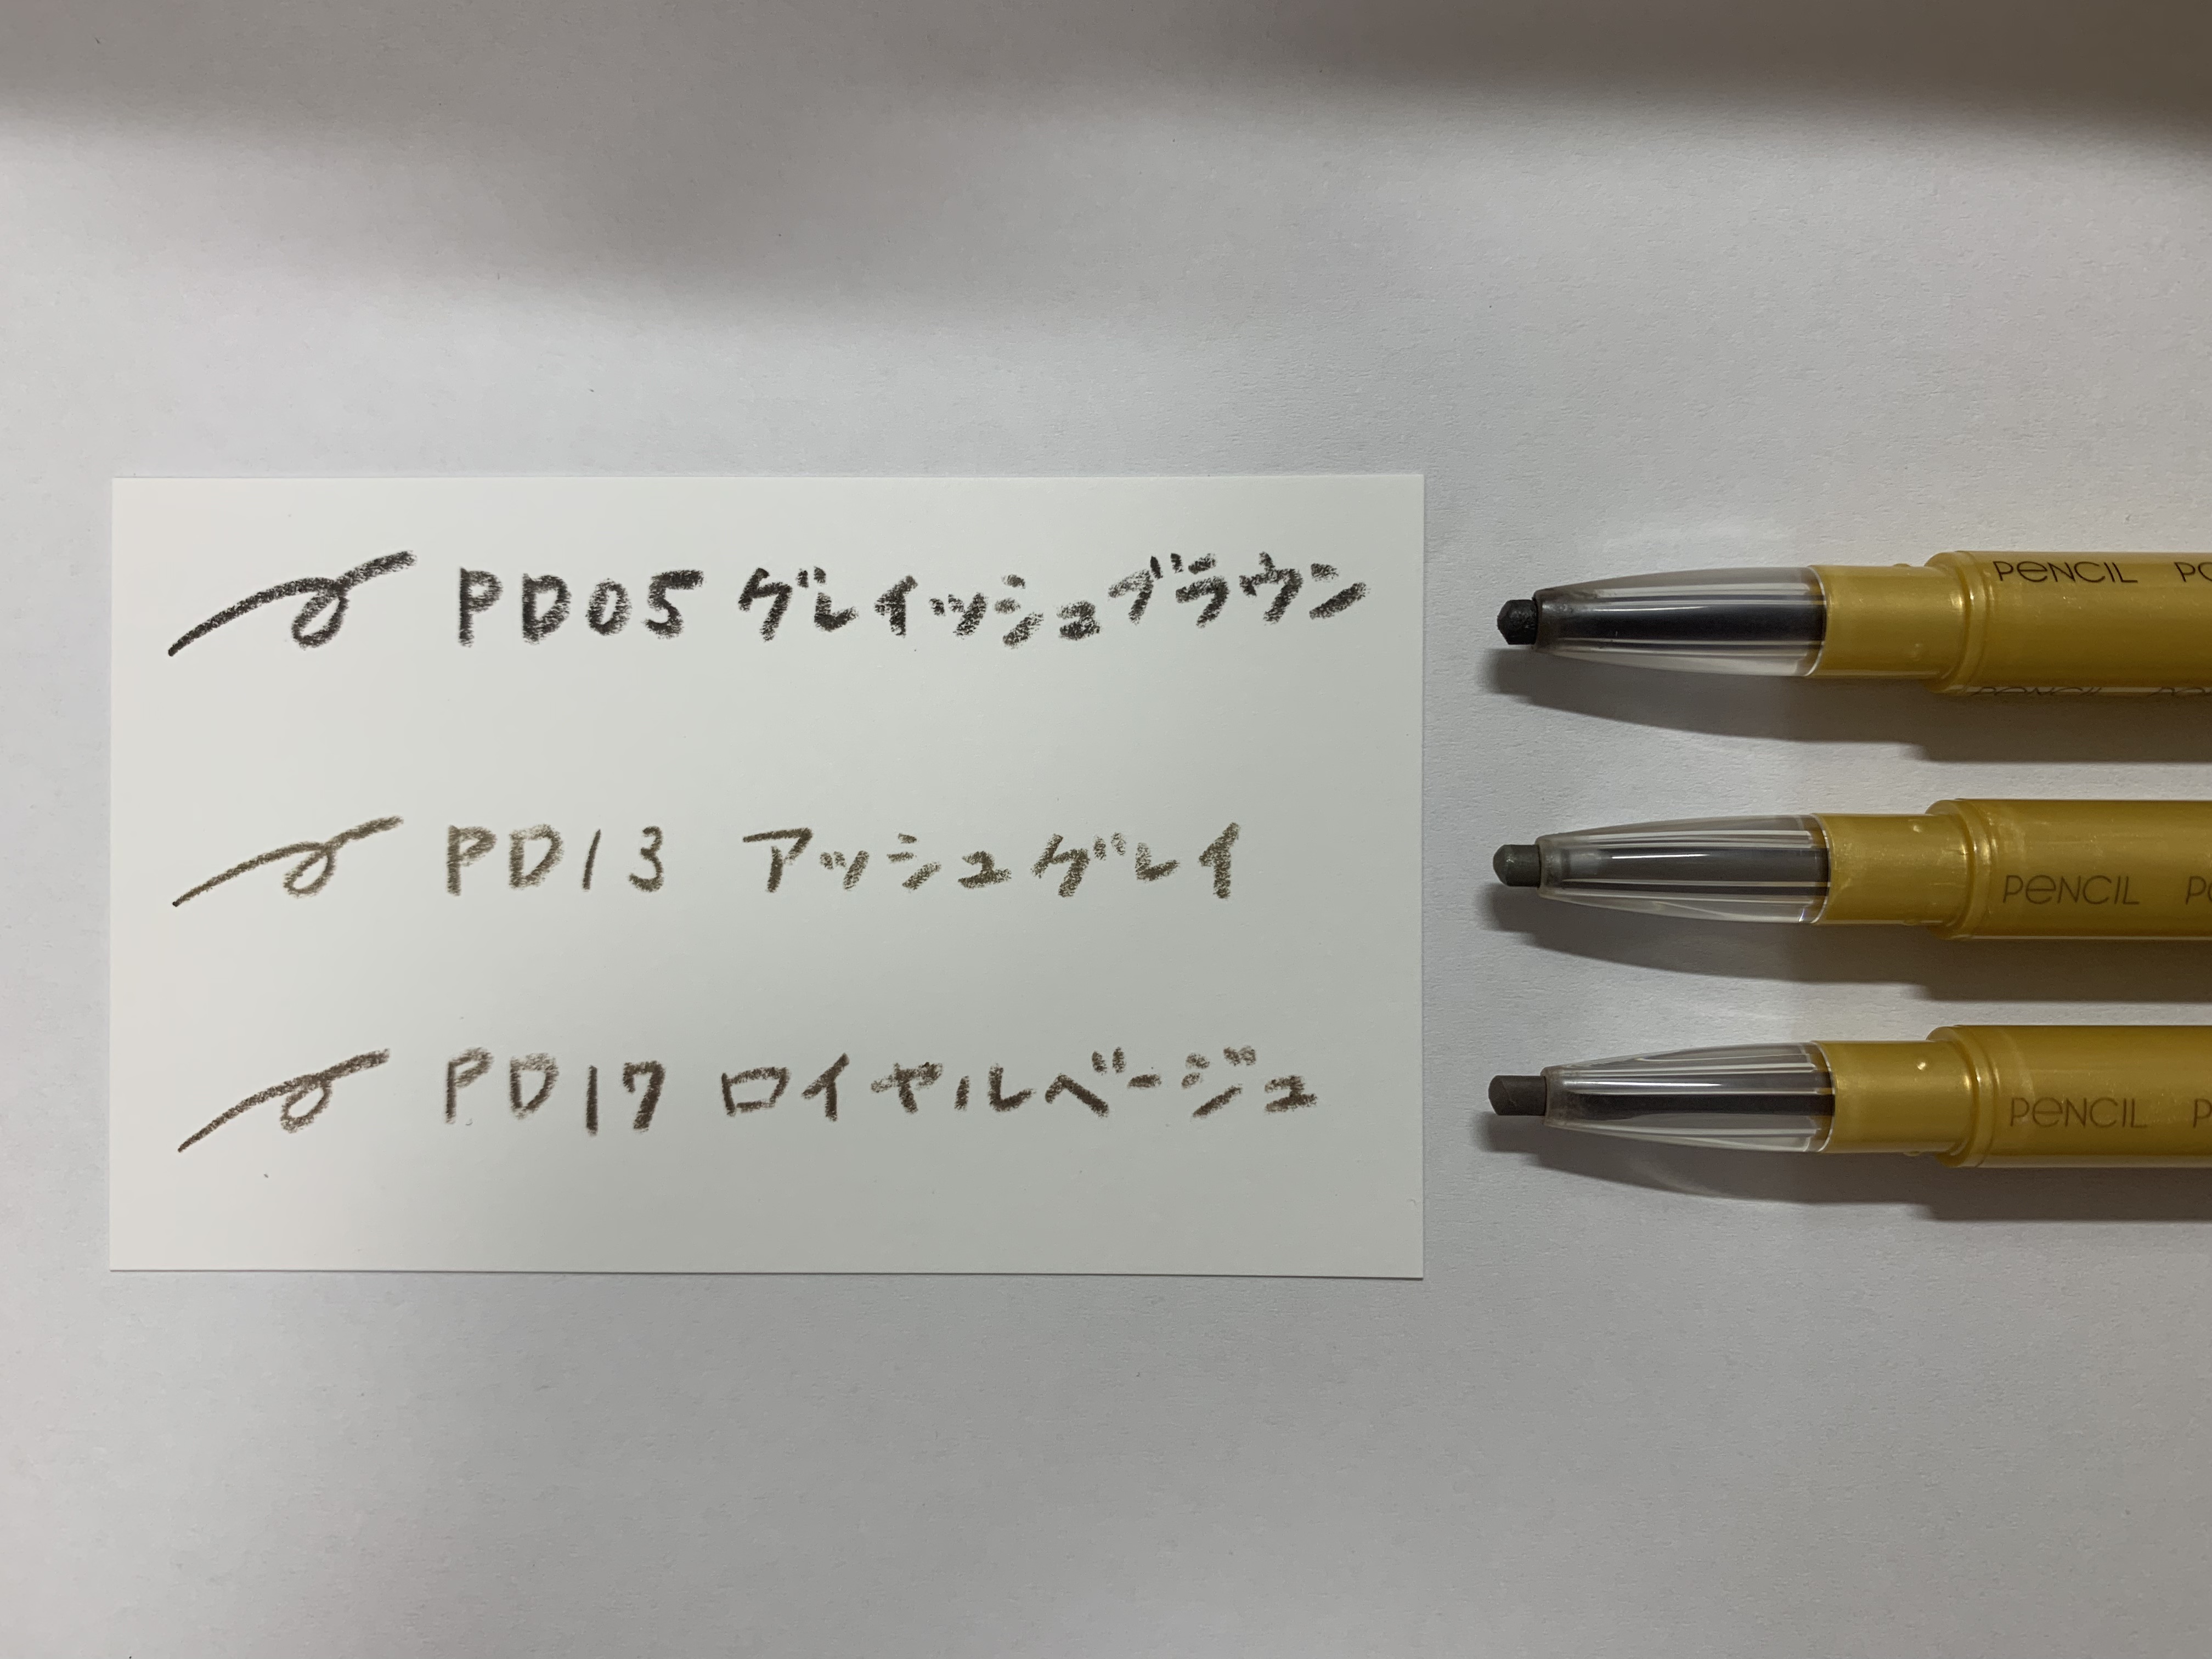 PD05 グレイッシュブラウン
PENCIL
PD13 アッシュグレイ
PENCIL
PD17 ロイヤルベージュ
PENCIL